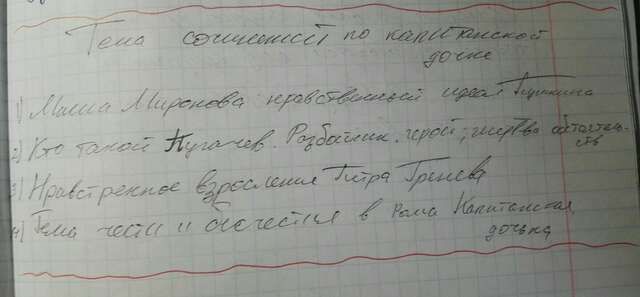 Тема сочинений по капитанской
дочке
1) Маша Миронова нравственный идеал Пушкина
2) Кто такой Пугачев. Разбойник, герой, жертва обстоятель-
ств
3) Нравственное взросления Петра Гринева
4) Тема чести и бесчестия в рома Капитанская
дочька